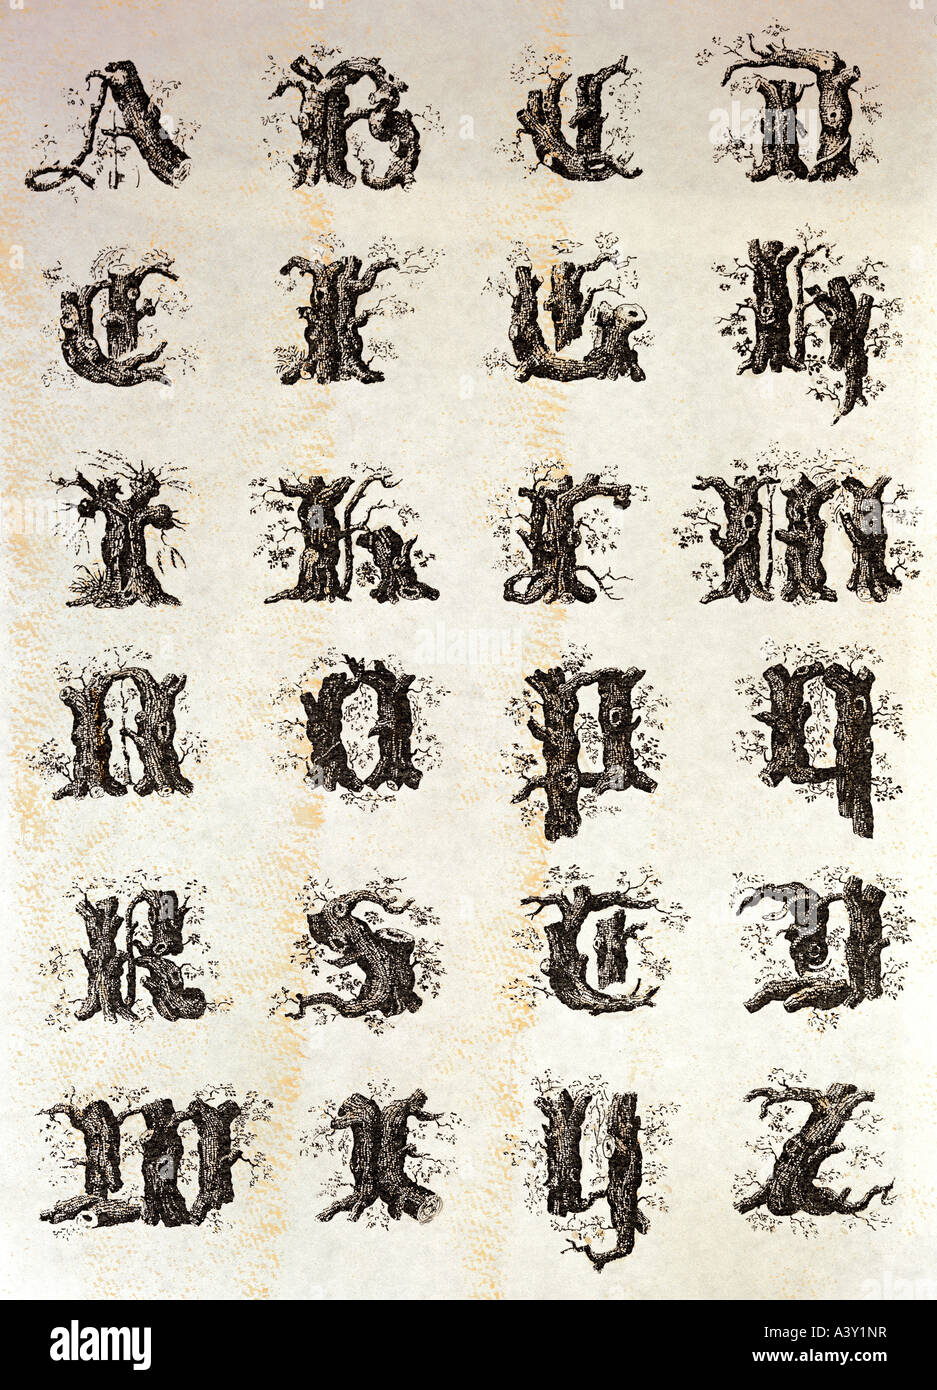 A B C D
E F G H
I K L M
N O P Q
R S T V
W X Y Z
alamy
Image ID: A3Y1NR
www.alamy.com